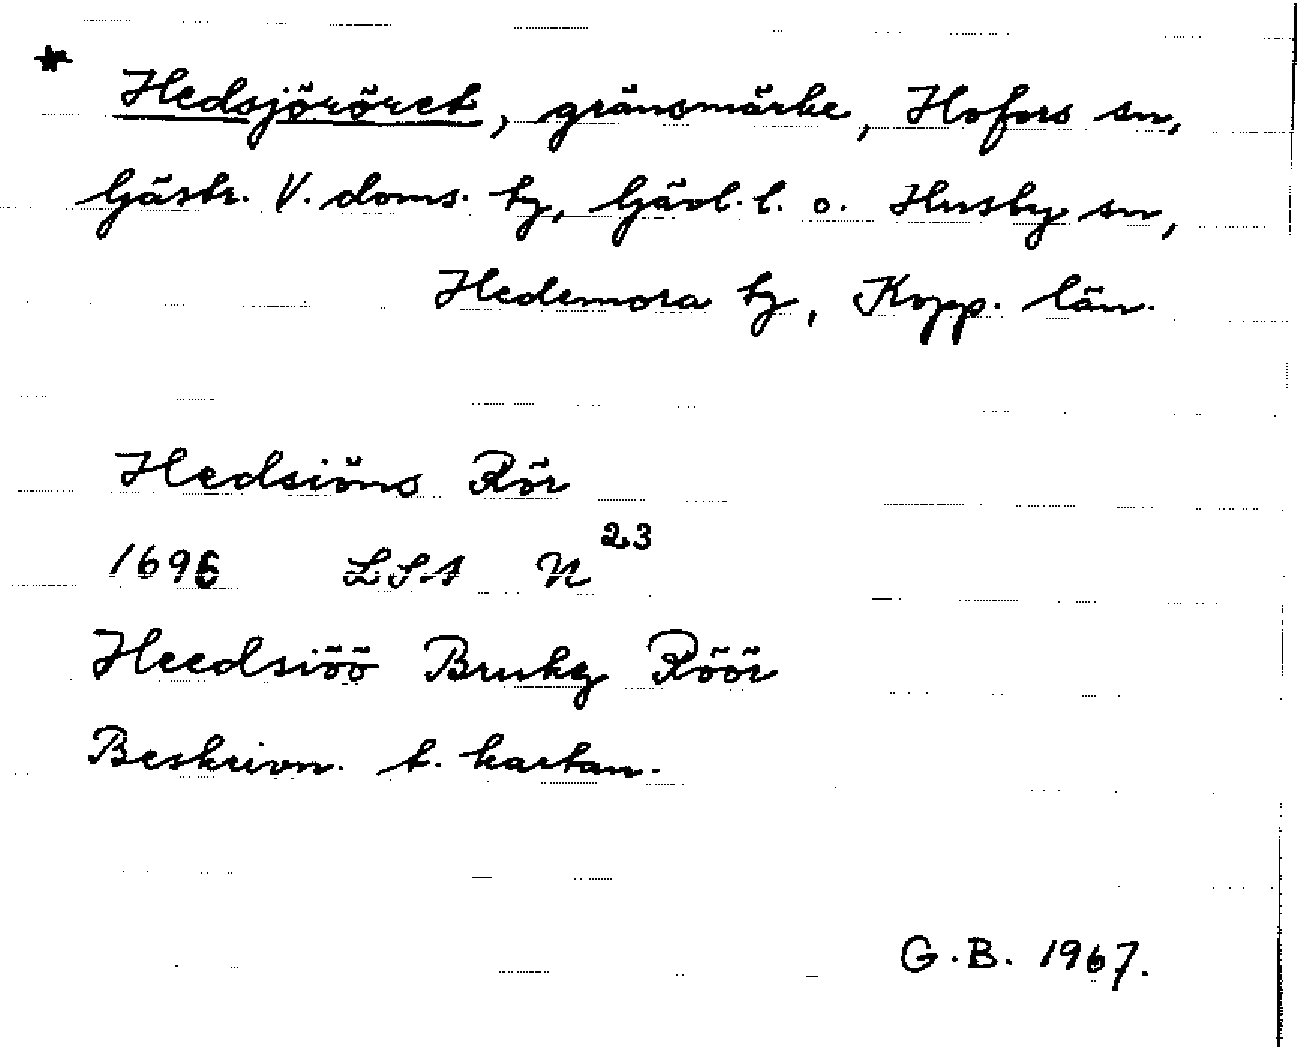 * Hedsjöröret, gränsmärke, Hofors sn,
Gästr. V. doms. hz, Gävl. l. o. Husby sn,
Hedemora hz, Kopp. län.
Hedsiöns Rör
1696 LSA N 23
Heedsiöö Brukz Röör
Beskrivn. t. kartan.
G.B. 1967.